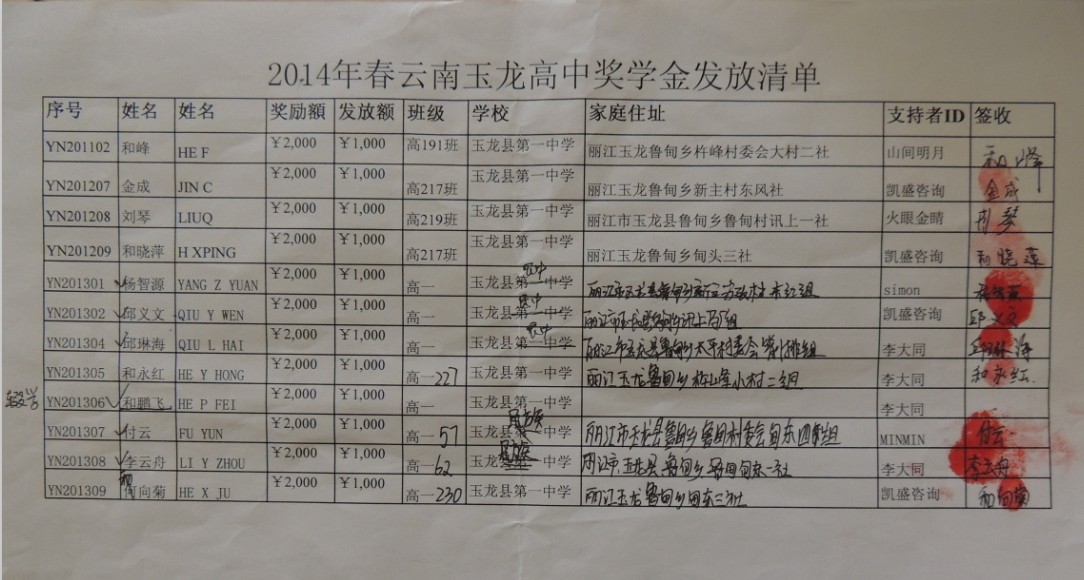 2014年春云南玉龙高中奖学金发放清单
序号 姓名 姓名 奖励額 发放额 班级 学校 家庭住址 支持者ID 签收
YN201102 和峰 HE F ￥2,000 ￥1,000 高191班 玉龙县第一中学 丽江玉龙鲁甸乡杵峰村委会大村二社 山间明月 和峰
YN201207 金成 JIN C ￥2,000 ￥1,000 高217班 玉龙县第一中学 丽江玉龙鲁甸乡新主村东风社 凯盛咨询 金成
YN201208 刘琴 LIUQ ￥2,000 ￥1,000 高219班 玉龙县第一中学 丽江市玉龙县鲁甸乡鲁甸村讯上一社 火眼金睛 刘琴
YN201209 和晓萍 H XPING ￥2,000 ￥1,000 高217班 玉龙县第一中学 丽江玉龙鲁甸乡甸头三社 凯盛咨询 和晓萍
YN201301 杨智源 YANG Z YUAN ￥2,000 ￥1,000 高一 玉龙县第一中学 丽江市玉龙县鲁甸乡 simon
YN201302 邱义文 QIU Y WEN ￥2,000 ￥1,000 高一 玉龙县第一中学 丽江市 凯盛咨询 邱义文
YN201304 邱琳海 QIU L HAI ￥2,000 ￥1,000 高一 玉龙县第一中学 丽江市玉龙县鲁甸乡太平村委会 李大同 邱琳海
YN201305 和永红 HE Y HONG ￥2,000 ￥1,000 高一227 玉龙县第一中学 丽江玉龙鲁甸乡 小村二组 李大同 和永红
辍学 YN201306 和鹏飞 HE P FEI ￥2,000 ￥1,000 高一 玉龙县第一中学 李大同
YN201307 付云 FU YUN ￥2,000 ￥1,000 高一57 玉龙县 丽江市玉龙县鲁甸乡鲁甸村委会甸东四组 MINMIN 付云
YN201308 李云舟 LI Y ZHOU ￥2,000 ￥1,000 高一62 玉龙县第一中学 丽江市玉龙县鲁甸乡鲁甸甸东一社 李大同 李云舟
YN201309 和向菊 HE X JU ￥2,000 ￥1,000 高一230 玉龙县第一中学 丽江玉龙鲁甸乡甸东三社 凯盛咨询 和向菊